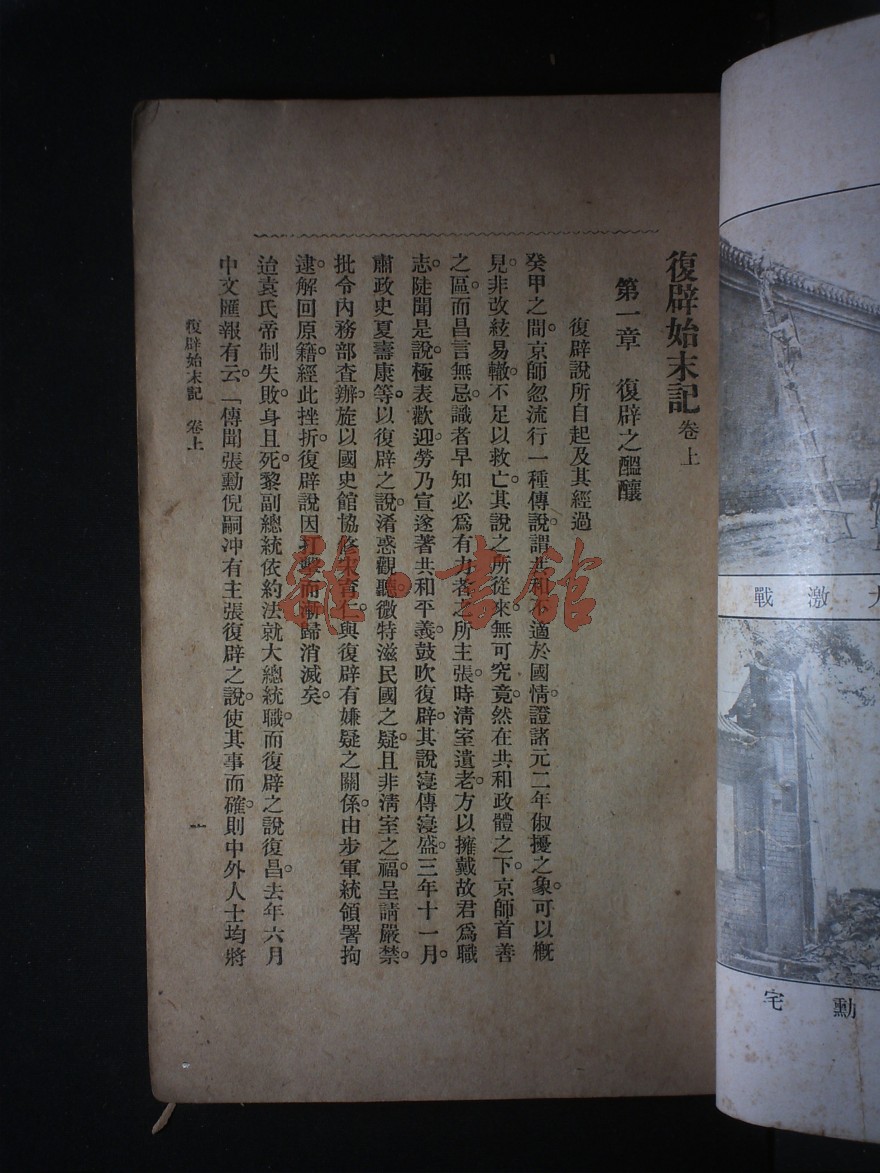 復辟始末記 卷上
第一章 復辟之醞釀
復辟說所自起及其經過
癸甲之間。京師忽流行一種傳說。謂共和不適於國情。證諸元二年俶擾之象。可以槪
見。非改絃易轍。不足以救亡。其說之所從來。無可究竟。然在共和政體之下。京師首善
之區。而昌言無忌。識者早知必爲有力者之所主張。時淸室遺老。方以擁戴故君爲職
志。陡聞是說。極表歡迎。勞乃宣遂著共和平義。鼓吹復辟。其說寖傳寖盛。三年十一月。
肅政史夏壽康等。以復辟之說。淆惑觀聽。微特滋民國之疑。且非淸室之福。呈請嚴禁。
批令內務部査辦。旋以國史館協修宋育仁。與復辟有嫌疑之關係。由步軍統領署拘
逮。解回原籍。經此挫折。復辟說因打擊而漸歸消滅矣。
迨袁氏帝制失敗。身且死。黎副總統依約法就大總統職。而復辟之說復昌。去年六月
中文匯報有云。「傳聞張勳倪嗣沖有主張復辟之說。使其事而確。則中外人士均將
復辟始末記 卷上
一
大激戰
勳宅
雜·書館